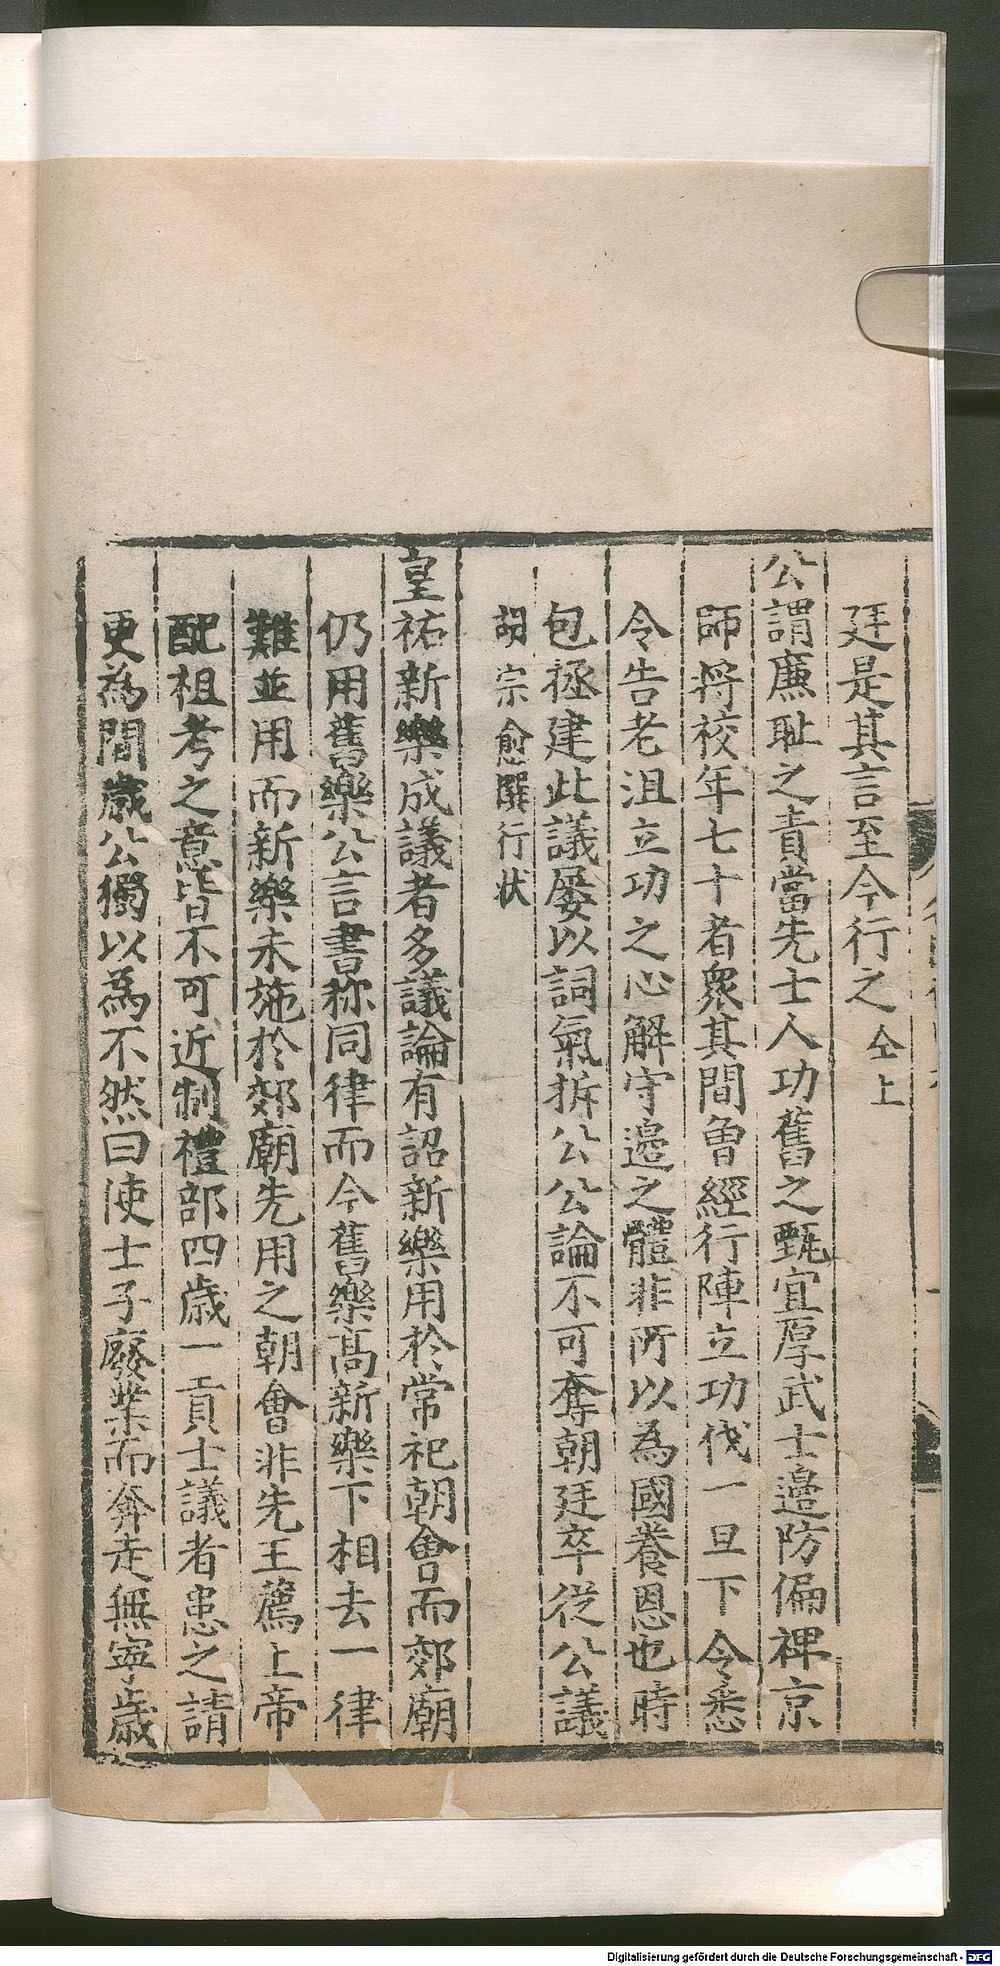 廷是其言至今行之 仝上
公謂廉耻之責當先士人功舊之甄宜厚武士邊防偏裨京
師將校年七十者衆其間曾經行陣立功伐一旦下令悉
令告老沮立功之心解守邊之體非所以為國養恩也時
包拯建此議屡以詞氣拆公公論不可奪朝廷卒從公議
胡宗愈撰行状
皇祐新樂成議者多議論有詔新樂用於常祀朝會而郊廟
仍用舊樂公言書称同律而今舊樂高新樂下相去一律
難並用而新樂未施於郊廟先用之朝會非先王薦上帝
配祖考之意皆不可近制禮部四歲一貢士議者患之請
更為間歲公獨以為不然曰使士子廢業而奔走無寧歲
Digitalisierung gefördert durch die Deutsche Forschungsgemeinschaft - DFG